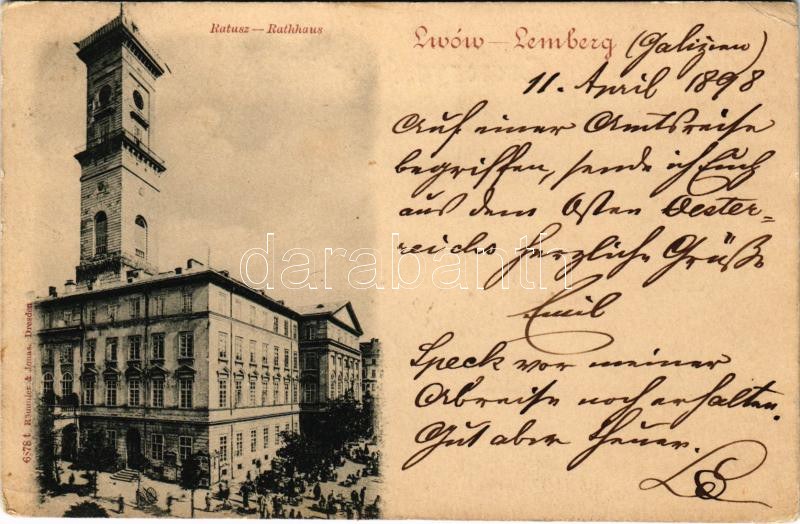 Ratusz — Rathhaus
Lwów — Lemberg (Galizien)
11. April 1898
Auf einer Amtsreise
begriffen, sende ich Euch
aus dem Osten Oester-
reichs herzliche Grüße
Emil
Speck vor meiner
Abreise noch erhalten.
Gut aber theuer.
darabanth
Dresden